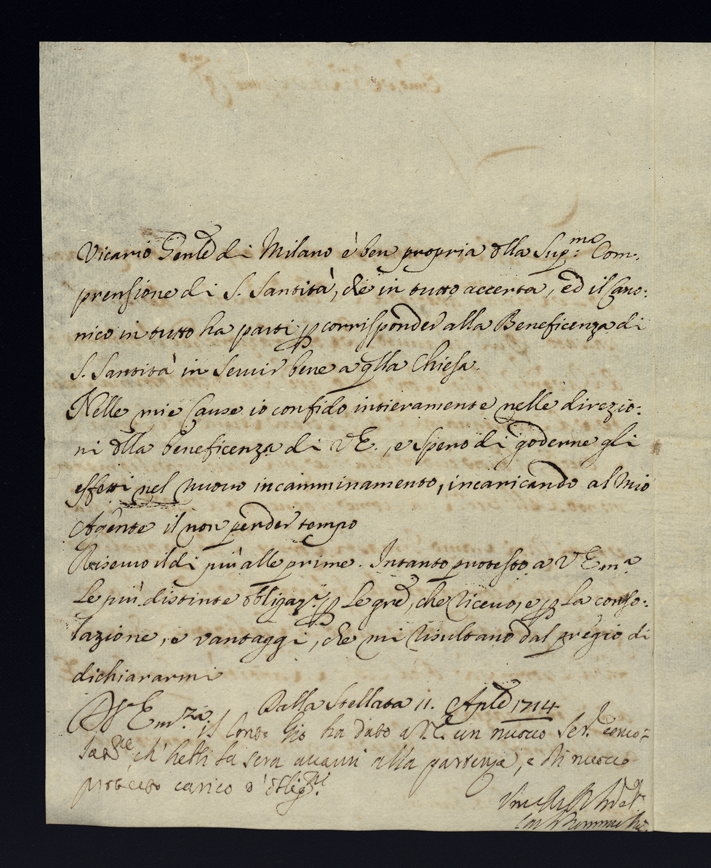 Vicario Gen̅le di Milano è ben propria dlla Sup:ma Com-
prensione di S. Santità, che in tutto accerta, ed il Cano-
nico in tutto ha parti p corrisponder alla Beneficenza di
S. Santità in Servir bene a qlla Chiesa.
Nelle mie Cause io confido intieramente nelle direzio-
ni dlla beneficenza di V.E., e spero di goderne gli
effetti nel nuovo incamminamento, incaricando al mio
Agente il non perder tempo
Riservo il di più alle prime. Intanto protesto a V.Em.a
Le più distinte obligaz.ni p Le gre, che ricevo, e p La conso-
lazione, e vantaggi, che mi risultano dal pregio di
dichiararmi
Di V. Em.za Dalla Stellata 11. Aple 1714
Il Conte Gio ha dato a me un nuovo
la sera avanti alla partenza, e di nuovo
protesto carico d'oblig.ni